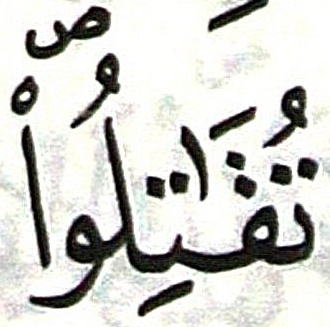 تُقَٰتِلُوا۟ ص